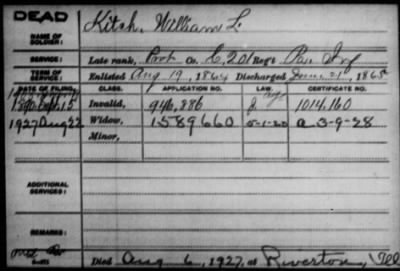 DEAD
NAME OF SOLDIER: Kitch, William L.
SERVICE: Late rank, Pvt Co. C, 201 Reg't Pa. Inf
TERM OF SERVICE: Enlisted Aug 19, 1864 Discharged June 21, 1865
DATE OF FILING. CLASS. APPLICATION NO. LAW. CERTIFICATE NO.
1890 15 Invalid, 946,886 1014,160
1927 Aug 22 Widow, 1589660 5-1-20 a 3-9-28
Minor,
ADDITIONAL SERVICES:
REMARKS:
Died Aug 6, 1927, at Riverton,